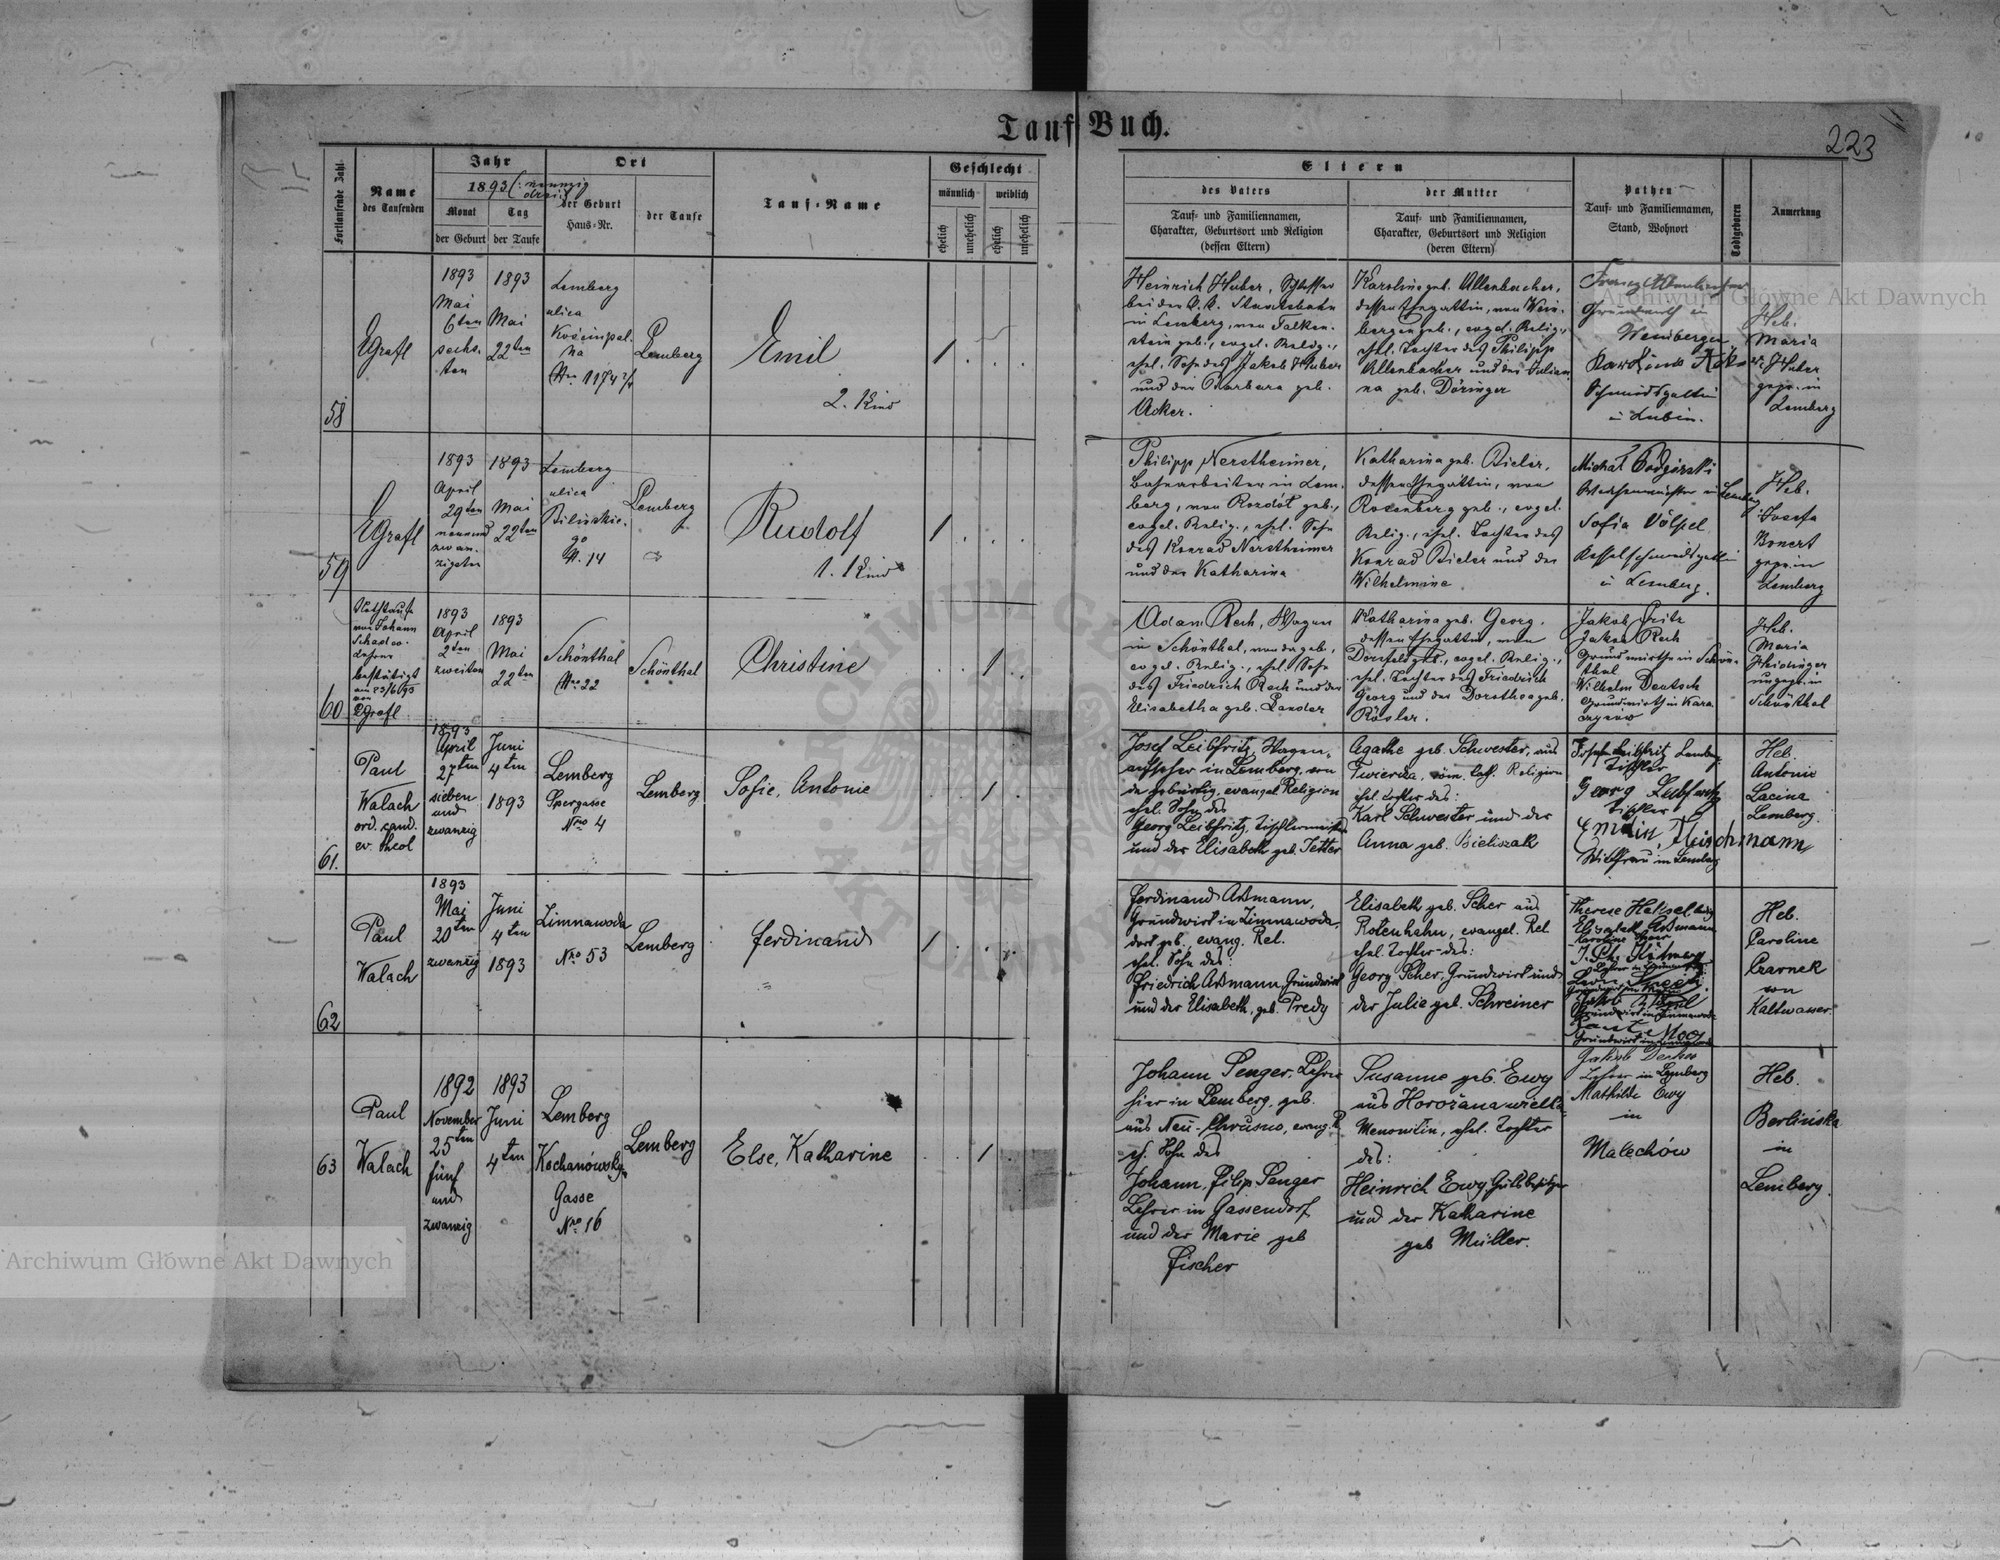 Tauf Buch.
223
Fortlaufende Zahl
Name
des Taufenden
Jahr
1893 (: neunzig
drei
Monat
Tag
der Geburt
der Taufe
Ort
der Geburt
Haus-Nr.
der Taufe
Tauf-Name
Geschlecht
männlich
weiblich
ehelich
unehelich
ehelich
unehelich
Eltern
des Vaters
der Mutter
Tauf- und Familiennamen,
Charakter, Geburtsort und Religion
(dessen Eltern)
Tauf- und Familiennamen,
Charakter, Geburtsort und Religion
(deren Eltern)
Pathen
Tauf- und Familiennamen,
Stand, Wohnort
Todtgeboren
Anmerkung
58
Egrafl
1893
Mai
6ten
sechs-
ten
1893
Mai
22ten
Lemberg
ulica
Lemberg
Emil
2. Kind
1
Heinrich Huber, Schlosser
bei der k. k. Staatsbahn
in Lemberg, von Falken-
stein geb., evgel. Relig.,
ehel. Sohn des Jakob Huber
und der Barbara geb.
Acker.
Karoline geb. Allenbacher,
dessen Ehegattin, von Wein-
bergen geb., evgel. Relig.,
ehel. Tochter des Philipp
Allenbacher und der Julian-
na geb. Döringer
Weinbergen
Heb.
Maria
Huber
gepr. in
Lemberg
59
Egrafl
1893
April
29ten
neunund
zwan-
zigsten
1893
Mai
22ten
Lemberg
ulica
N. 14
Lemberg
Rudolf
1. Kind
1
Philipp Nerstheimer,
Bahnarbeiter in Lem-
berg, von Rozdół geb.,
evgel. Relig., ehel. Sohn
des Konrad Nerstheimer
und der Katharina
Katharina geb. Bieler,
dessen Ehegattin, von
Rosenberg geb., evgel.
Relig., ehel. Tochter des
Konrad Bieler und der
Wilhelmine
Sofia Völpel
in Lemberg.
Heb.
Josefa
Bonert
gepr. in
Lemberg
60
Nothtaufe
von Johann
bestätigt
von
Egrafl
1893
April
2ten
zweiten
1893
Mai
22ten
Schönthal
Nro 22
Schönthal
Christine
1
Adam Rech, Wagner
in Schönthal, von da geb.,
evgel. Relig., ehel. Sohn
des Friedrich Rech und der
Elisabetha geb. Lander
Katharina geb. Georg,
dessen Ehegattin, von
Dornfeld geb., evgel. Relig.,
ehel. Tochter des Friedrich
Georg und der Dorothea geb.
Rösler.
Jakob Fritz
Jakob Rech
Grundwirthe in Schön-
thal
Wilhelm Deutsch
Grundwirth in
Heb.
Maria
ungepr. in
Schönthal
61.
Paul
Walach
ord. cand.
ev. theol
1893
April
27ten
sieben
und
zwanzig
Juni
4ten
1893
Lemberg
Nro 4
Lemberg
Sofie, Antonie
1
Josef Leibfritz, Wagen-
aufseher in Lemberg, von
da gebürtig, evangel Religion
ehel. Sohn des
Georg Leibfritz, Tischlermeister
und der Elisabeth geb. Tetter
Agathe geb. Schwester, aus
röm. kath. Religion
ehel. Tochter des:
Karl Schwester und der
Anna geb. Bieliszak
Tischler
Georg Leibfritz
Tischler
Heb.
Antonie
Lacina
Lemberg.
62
Paul
Walach
1893
Mai
20ten
zwanzig
Juni
4ten
1893
Zimnawoda
Nro 53
Lemberg
Ferdinand
1
Ferdinand Aßmann,
Grundwirt in Zimnawoda,
dort geb., evang. Rel.
ehel. Sohn des:
Friedrich Aßmann, Grundwirt
und der Elisabeth, geb. Predy
Elisabeth geb. Scher aus
Rotenhahn, evangel. Rel
ehel. Tochter des:
Georg Scher, Grundwirt und
der Julie geb. Schreiner
Elisabeth Aßmann
Heb.
Caroline
Czarnek
von
Kaltwasser
63
Paul
Walach
1892
November
25ten
fünf
und
zwanzig
1893
Juni
4ten
Lemberg
Kochanówsky-
Gasse
Nro 16
Lemberg
Else, Katharine
1
Johann Senger, Lehrer
hier in Lemberg, geb.
aus Neu-Chrusno, evang. R
eh. Sohn des
Johann, Filip Senger
Lehrer in Gassendorf
und der Marie geb
Fischer
Susanne geb. Ewy
aus Horożana wielka
Menonitin, ehel. Tochter
des:
Heinrich Ewy, Gutsbesitzer
und der Katharine
geb Müller.
Jakob Decker
Lehrer in Lemberg
Mathilde Ewy
in
Malechów
Heb.
Berlińska
in
Lemberg.
Archiwum Główne Akt Dawnych
Archiwum Główne Akt Dawnych